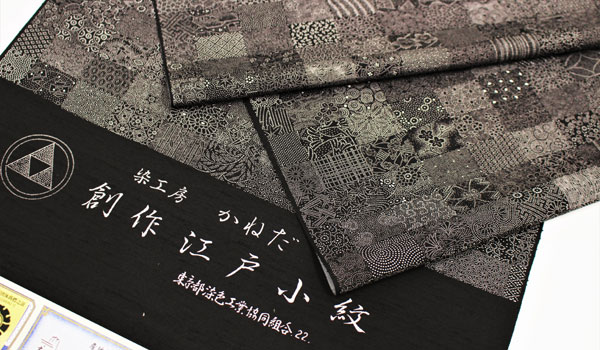 染工房 かねだ
創作江戸小紋
東京都染色工業協同組合.22.